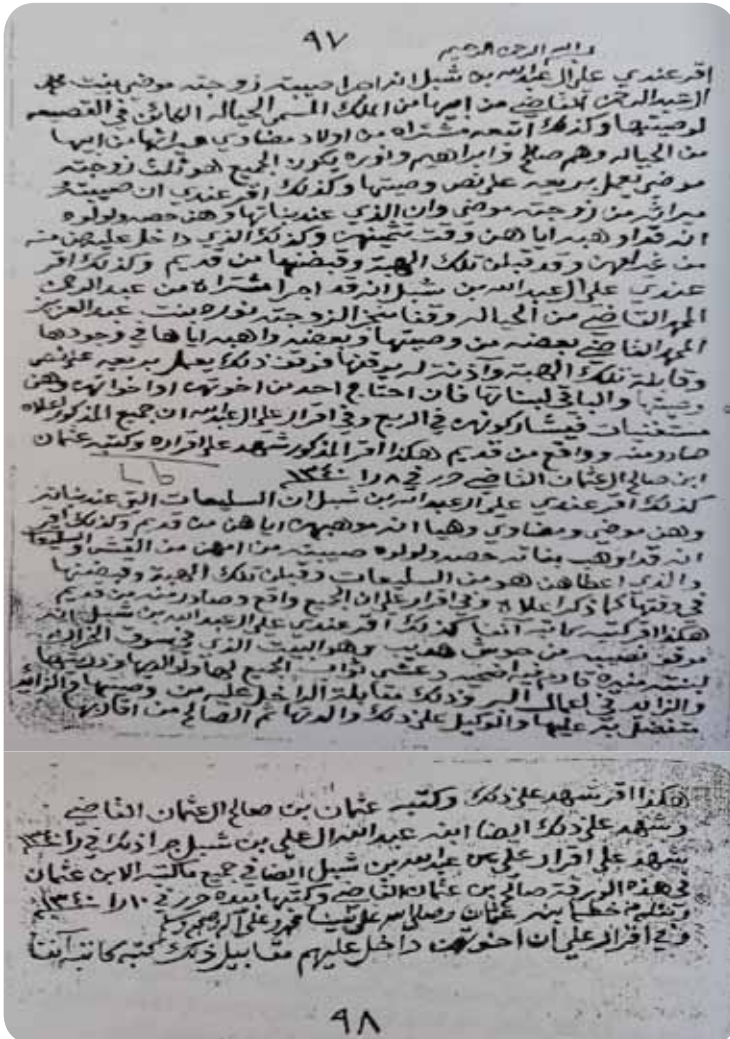 ٩٧
بسم الله الرحمن الرحيم
اقر عندي علي ال عبدالله بن شبل انه اجرا صيبته زوجته موضي بنت محمد
العبدالرحمن القاضي من ابيها من الملك المسمى الحياله الكائن في القصيعه
لوصيتها وكذلك اتبعه مشتراه من اولاد مضاوي ميراثها من ابيها
من الحياله وهم صالح وابراهيم ونوره يكون الجميع هو ثلث زوجته
موضي يعمل بريعه على نص وصيتها وكذلك اقر عندي ان صيبته
ميراثه من زوجته موضي وان الذي عند بناتها وهن حصه ولولوه
انه قد اوهبه اياهن وقت تثمينهن وكذلك الذي داخل عليهن منه
من غدابهن وقد قبلن تلك الهبة وقبضنها من قديم وكذلك اقر
عندي علي ال عبدالله بن شبل انه قد اجرا مشتراه من عبدالرحمن
المحمد القاضي من الحياله وقفا منجز الزوجته نوره بنت عبدالعزيز
المحمد القاضي بعضه من وصيتها وبعضه واهبه اياها في وجودها
وقابلة تلك الهبة وآذنة له يوقفها فوقف ذلك يعمل بريعه على نص
وصيتها والباقي لبناتها فان احتاج احد من اخوتهن او اخواتهن وهن
مستغنيات فيشاركونهن في الريع وفي اقرار علي ال عبدالله ان جميع المذكور اعلاه
صادر منه وواقع من قديم هكذا اقر المذكور شهد على اقراره وكتبه عثمان
ابن صالح العثمان القاضي حرر في ٨ را ١٣٤٠
كذلك اقر عندي علي ال عبدالله بن شبل ان السليعات التي عند بناته
وهن موضي ومضاوي وهيا انه موهبهن اياهن من قديم وكذلك اقر
انه قد اوهب بناته حصه ولولوه صيبته من امهن من القش والسليعات
والذي اعطاهن هو من السليعات وقبلن تلك الهبة وقبضنها
في وقتها كما ذكر اعلاه وفي اقرار علي ان الجميع واقع وصادر منه من قديم
هكذا اقر كتبه كاتبه آنفا كذلك اقر عندي علي ال عبدالله بن شبل انه
موقف نصيبه من حوش هديب وهو البيت الذي في سوق الخرازه
لبنته منيره قادم فيه اضحيه وعشى ثواب الجميع لها ولوالديها وذريتها
والزائد في اعمال البر وذلك مقابلة الداخل عليه من وصيتها والزائد
متفضل به عليها والوكيل على ذلك والدتها ثم الصالح من اقاربها
هكذا اقر شهد على ذلك وكتبه عثمان بن صالح العثمان القاضي
وشهد على ذلك ايضا ابنه عبدالله ال علي بن شبل جرا ذلك في را ١٣٤٠
شهد على اقرار علي بن عبدالله بن شبل ايضا في جميع ما كتبه الابن عثمان
في هذه الورقة صالح بن عثمان القاضي وكتبها بيده حرر في ١٠ را ١٣٤٠
ونقله من خط ابنه عثمان وصلى الله على نبينا محمد وعلى آله وصحبه وسلم
وفي اقرار علي ان اخوتهن داخل عليهم مقابيل ذلك كتبه كاتبه آنفا
٩٨